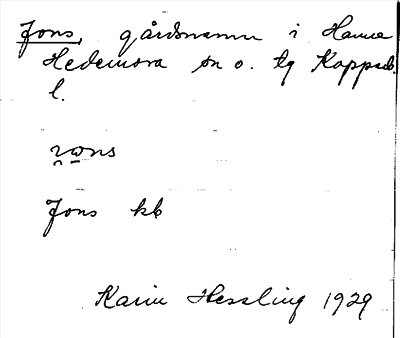 Jons, gårdsnamn i Hamre
Hedemora sn o. tg Kopparb.
l.
Jons kb
Karin Hessling 1929